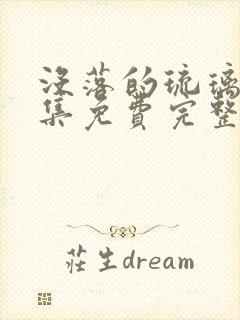 没落的琉璃
集免費完整
莊生dream